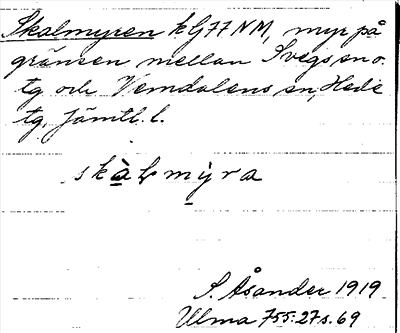 Skalmyren kG77NM, myr på
gränsen mellan Svegs sn o.
tg och Vemdalens sn, Heds
tg, Jämtl. l.
skàlmỳra
S. Åsander 1919
Ulma 755:27 s. 69